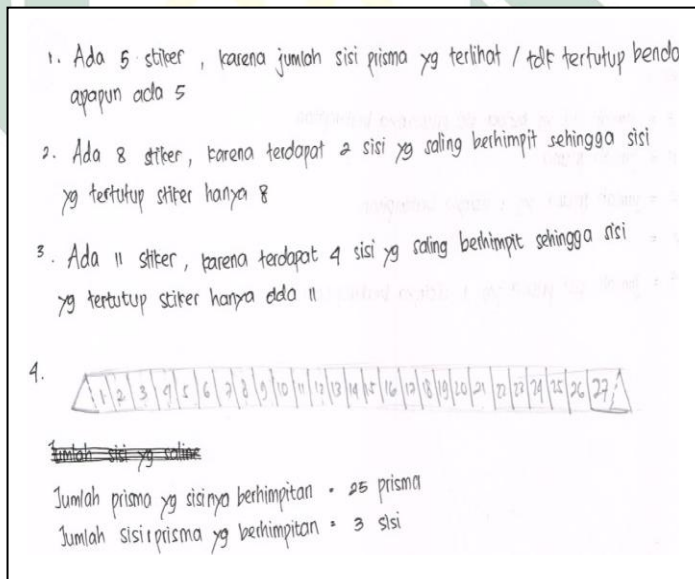 1. Ada 5 stiker, karena jumlah sisi prisma yg terlihat / tdk tertutup benda
apapun ada 5
2. Ada 8 stiker, karena terdapat 2 sisi yg saling berhimpit sehingga sisi
yg tertutup stiker hanya 8
3. Ada 11 stiker, karena terdapat 4 sisi yg saling berhimpit sehingga sisi
yg tertutup stiker hanya ada 11
4.
1 2 3 4 5 6 7 8 9 10 11 12 13 14 15 16 17 18 19 20 21 22 23 24 25 26 27
Jumlah sisi yg saling
Jumlah prisma yg sisinya berhimpitan = 25 prisma
Jumlah sisi prisma yg berhimpitan = 3 sisi